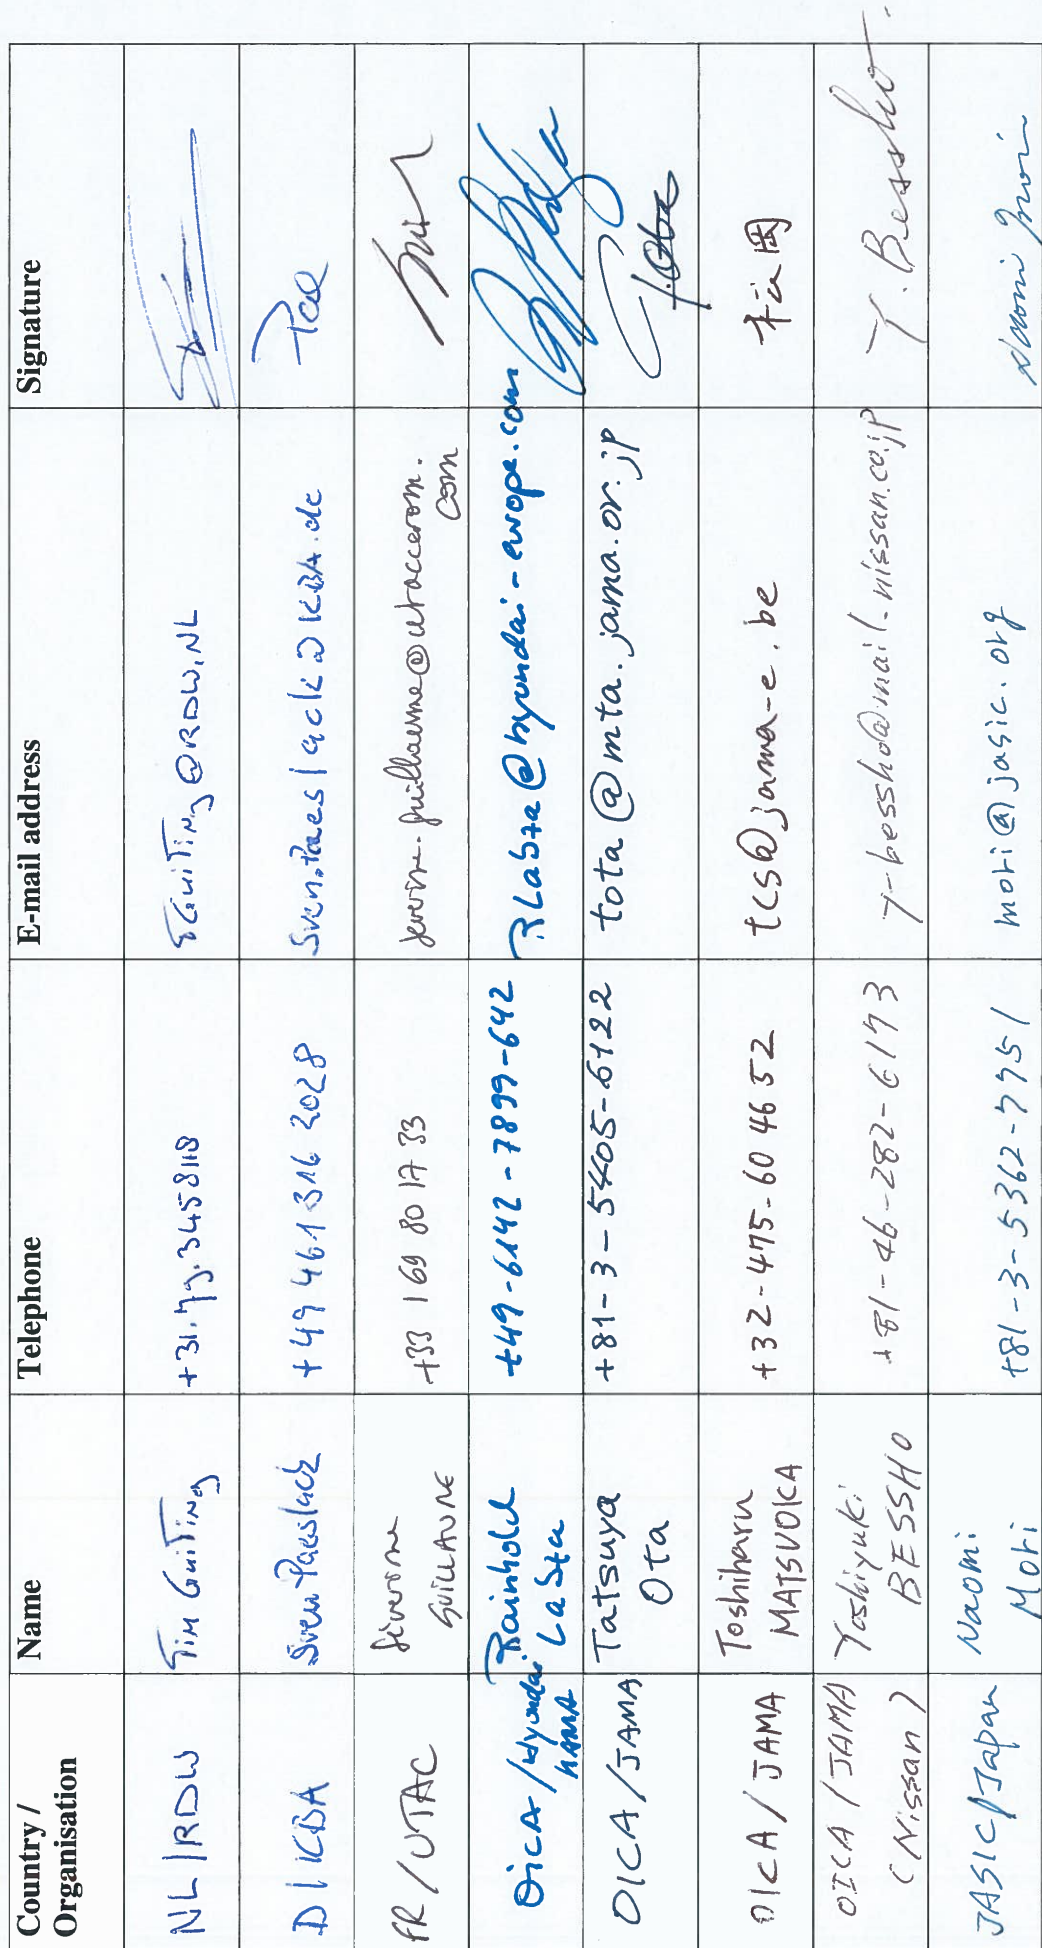 Country / Organisation	Name	Telephone	E-mail address	Signature
NL / RDW	Tim Guiting	+31.79.3458118	TGuiTing@RDW.NL
D / KBA	Sven Paeslack	+49 461 316 2028	Sven.Paeslack@KBA.de	Pae
FR / UTAC	Séverine GUILLAUME	+33 169 80 17 33	severine.guillaume@utacceram.com
OICA / Hyundai KAMA	Rainhold La Sta	+49-6142-7899-642	RLaSta@hyundai-europe.com
OICA / JAMA	Tatsuya Ota	+81-3-5405-6122	tota@mta.jama.or.jp	T. Ota
OICA / JAMA	Toshiharu MATSUOKA	+32-475-60 46 52	tcs@jama-e.be	松岡
OICA / JAMA (Nissan)	Yoshiyuki BESSHO	+81-46-282-6173	y-bessho@mail.nissan.co.jp	Y. Bessho.
JASIC / Japan	Naomi Mori	+81-3-5362-7751	mori@jasic.org	Naomi Mori